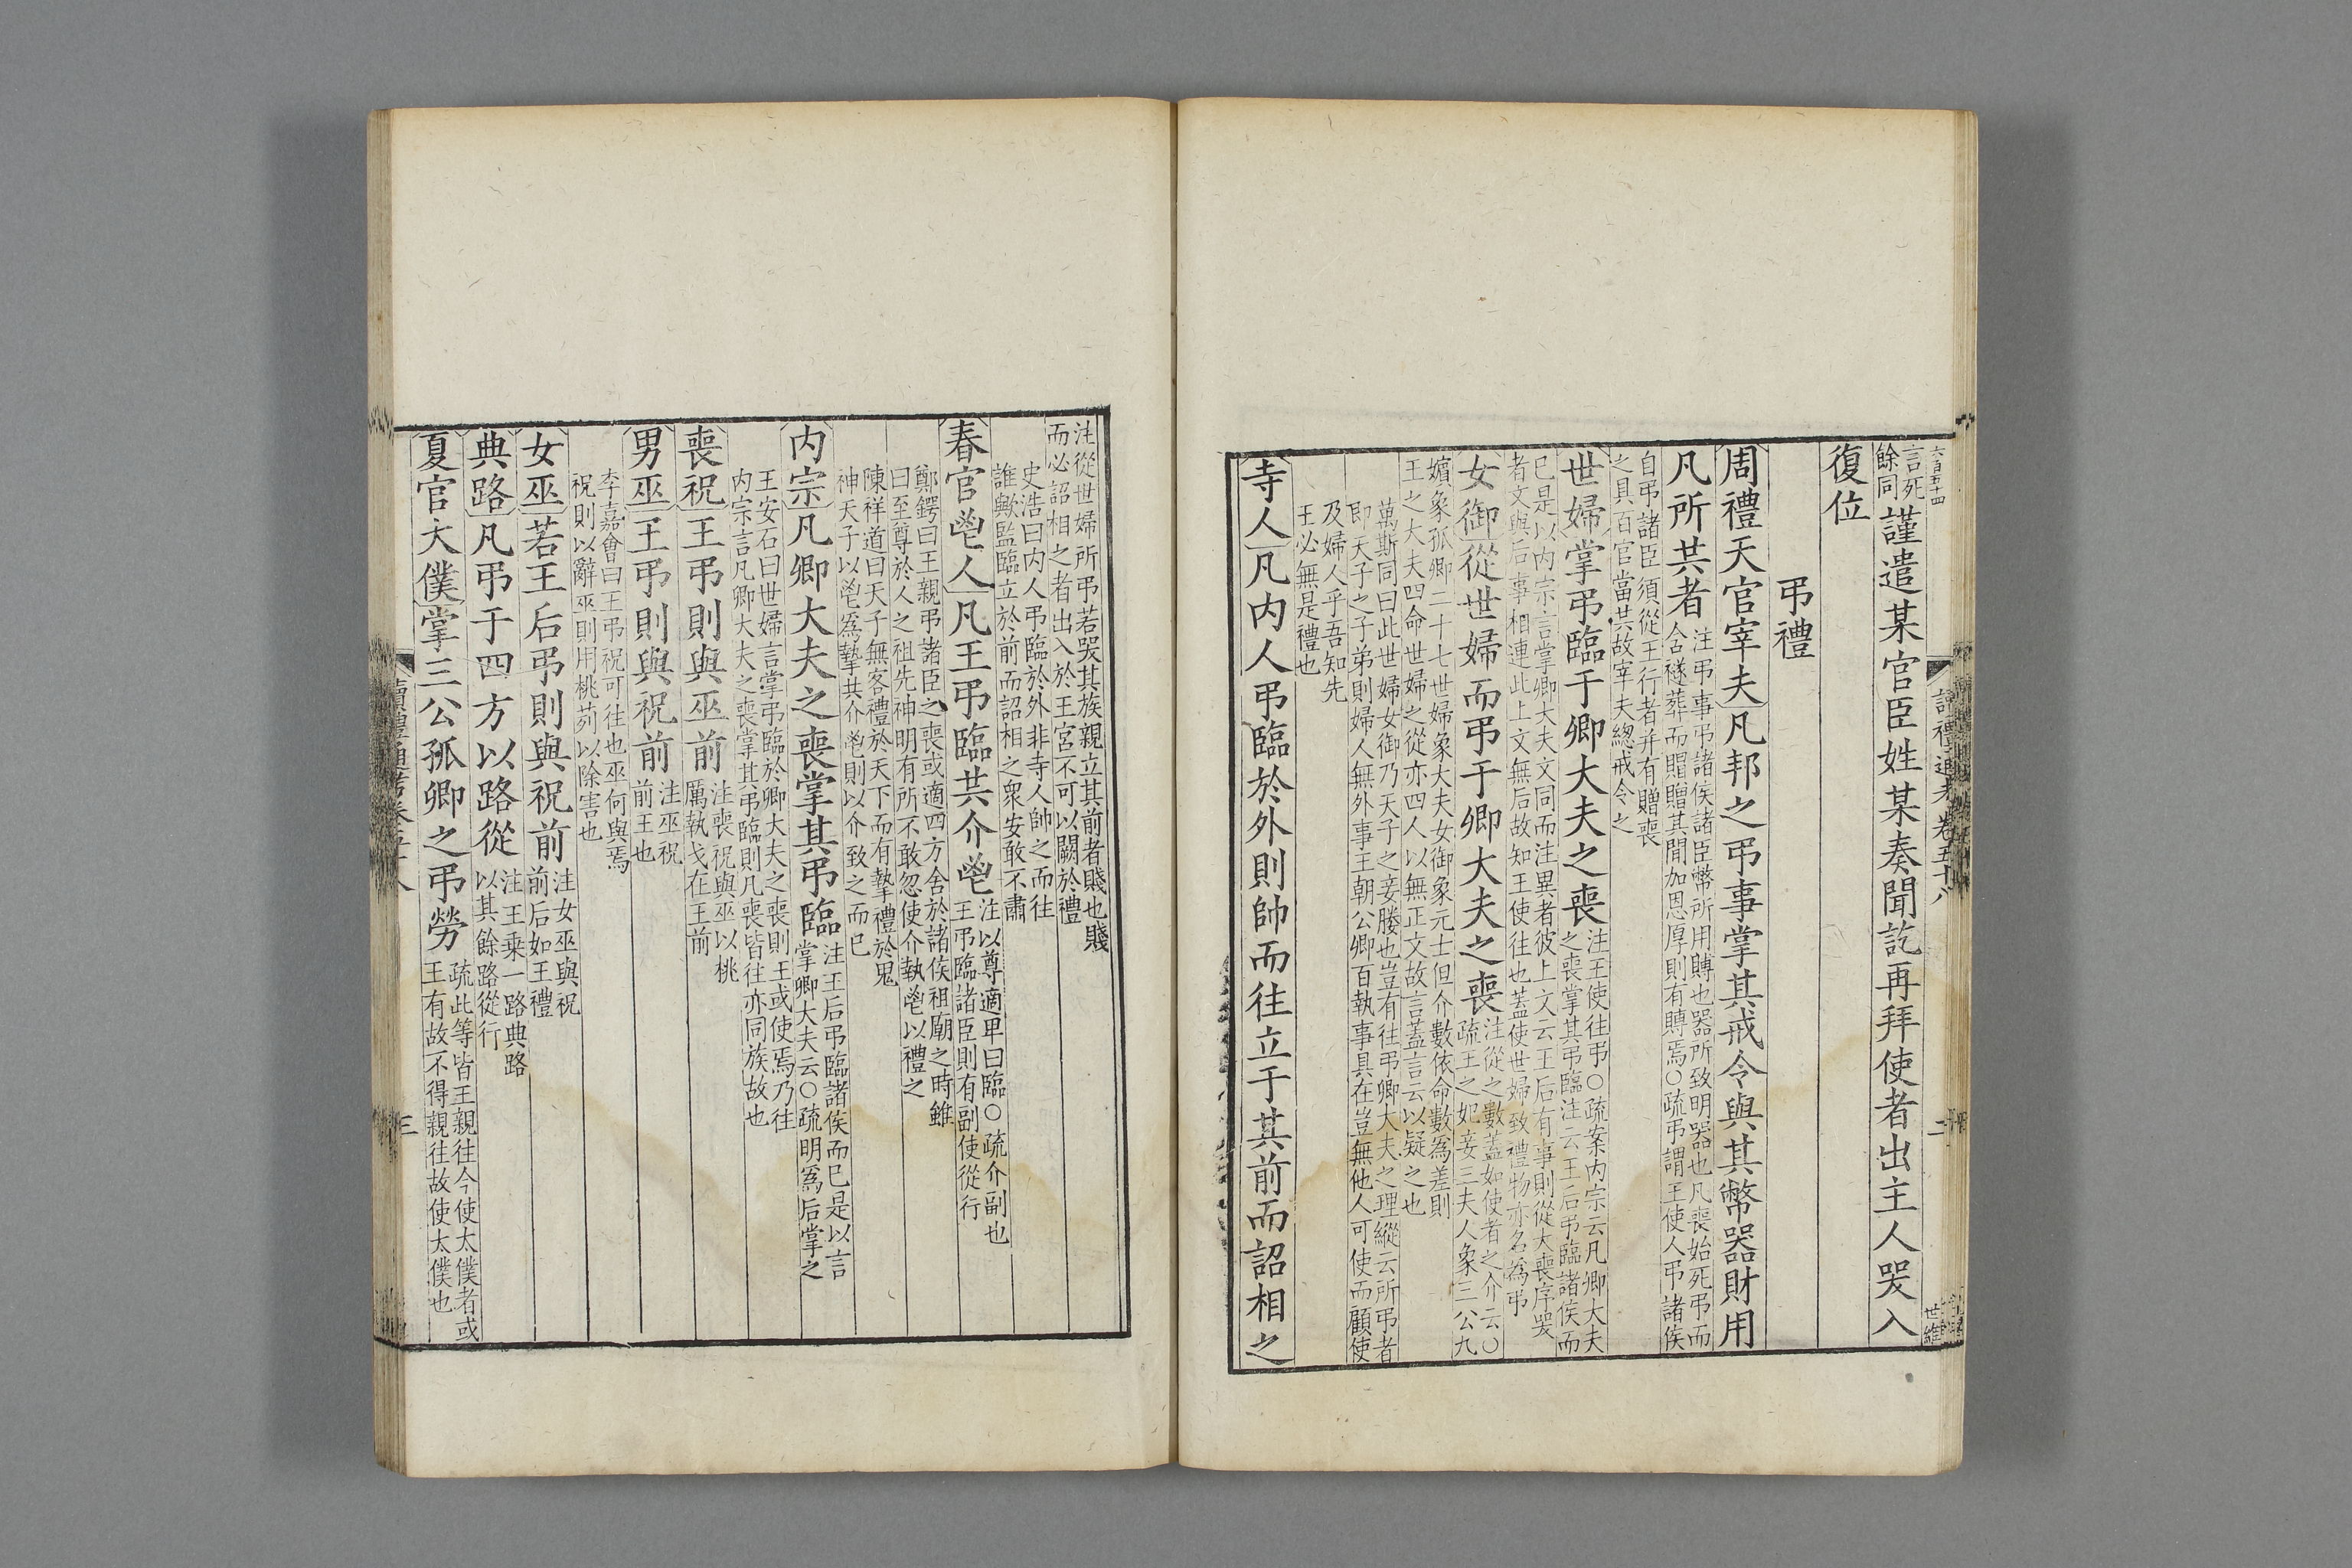 六百五十四
言死
餘同
謹遣某官臣姓某奏聞訖再拜使者出主人哭入
復位
弔禮
周禮天官宰夫凡邦之弔事掌其戒令與其幣器財用
凡所共者
注弔事弔諸侯諸臣幣所用賻也器所致明器也凡喪始死弔而
含襚葬而賵贈其間加恩厚則有賻焉○疏弔謂王使人弔諸侯
自弔諸臣須從王行者并有贈喪
之具百官當共故宰夫總戒令之
世婦掌弔臨于卿大夫之喪
注王使往弔○疏案内宗云凡卿大夫
之喪掌其弔臨注云王后弔臨諸侯而
已是以内宗言掌卿大夫文同而注異者彼上文云王后有事則從大喪序哭
者文與后事相連此上文無后故知王使往也葢使世婦致禮物亦名為弔
女御從世婦而弔于卿大夫之喪
注從之數蓋如使者之介云○
疏王之妃妾三夫人象三公九
嬪象孤卿二十七世婦象大夫女御象元士但介數依命數為差則
王之大夫四命世婦之從亦四人以無正文故言蓋言云以疑之也
萬斯同曰此世婦女御乃天子之妾媵也豈有往弔卿大夫之理縱云所弔者
即天子之子弟則婦人無外事王朝公卿百執事具在豈無他人可使而顧使
及婦人乎吾知先
王必無是禮也
寺人凡内人弔臨於外則帥而往立于其前而詔相之
讀禮通考卷五十八
二
世維
注從世婦所弔若哭其族親立其前者賤也賤
而必詔相之者出入於王宮不可以闕於禮
史浩曰内人弔臨於外非寺人帥之而往
誰歟監臨立於前而詔相之衆安敢不肅
春官鬯人凡王弔臨共介鬯
注以尊適甲曰臨○疏介副也
王弔臨諸臣則有副使從行
鄭鍔曰王親弔諸臣之喪或適四方舍於諸侯祖廟之時雖
曰至尊於人之祖先神明有所不敢忽使介執鬯以禮之
陳祥道曰天子無客禮於天下而有摯禮於鬼
神天子以鬯爲摯共介鬯則以介致之而已
内宗凡卿大夫之喪掌其弔臨
注王后弔臨諸侯而已是以言
掌卿大夫云○疏明爲后掌之
王安石曰世婦言掌弔臨於卿大夫之喪則王或使焉乃往
内宗言凡卿大夫之喪掌其弔臨則凡喪皆往亦同族故也
喪祝王弔則與巫前
注喪祝與巫以桃
厲執戈在王前
男巫王弔則與祝前
注巫祝
前王也
李嘉會曰王弔祝可往也巫何與焉
祝則以辭巫則用桃茢以除害也
女巫若王后弔則與祝前
注女巫與祝
前后如王禮
典路凡弔于四方以路從
注王乗一路典路
以其餘路從行
夏官大僕掌三公孤卿之弔勞
疏此等皆王親往今使太僕者或
王有故不得親往故使太僕也
讀禮通考卷五十八
三